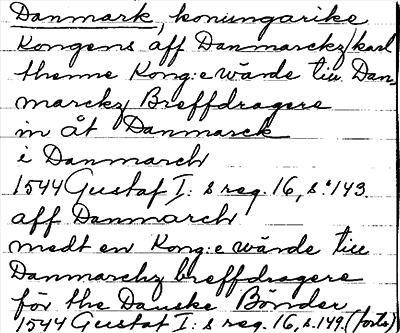 Danmark, konungarike
Kongens aff Danmarckz karl
thenne Kong:e wärde till Dan-
marckz Breffdragere
in åt Danmarck
i Danmarch
1544 Gustaf I:s reg. 16, s. 143.
aff Danmarch
medt en Kong:e wärde till
Danmarchz breffdragere
för the Danske Bönder
1544 Gustaf I:s reg. 16, s. 149 (forts.)